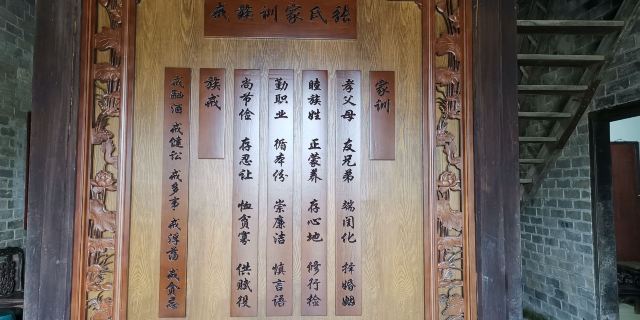 张氏家训族戒
家训
孝父母 友兄弟 端闺化 择婚姻
睦族姓 正蒙养 存心地 修行检
勤职业 循本份 崇廉洁 慎言语
尚节俭 存忍让 恤贫寡 供赋役
族戒
戒酗酒 戒健讼 戒多事 戒浮荡 戒贪忌